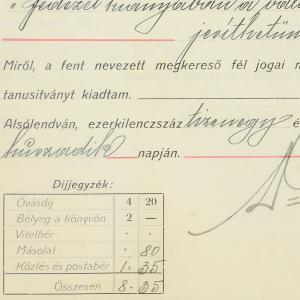 „ fedezet hiányában a
Miről, a fent nevezett megkereső fél jogai
tanusitványt kiadtam.
Alsólendván, ezerkilenczszáz tizenegy é
huszadik napján.
Díjjegyzék:
Óvásdij 4 20
Bélyeg a könyvön 2 —
Vitelbér · ·
Másolat · 80
Közlés és postabér 1 · 35
Összesen 8 · 35